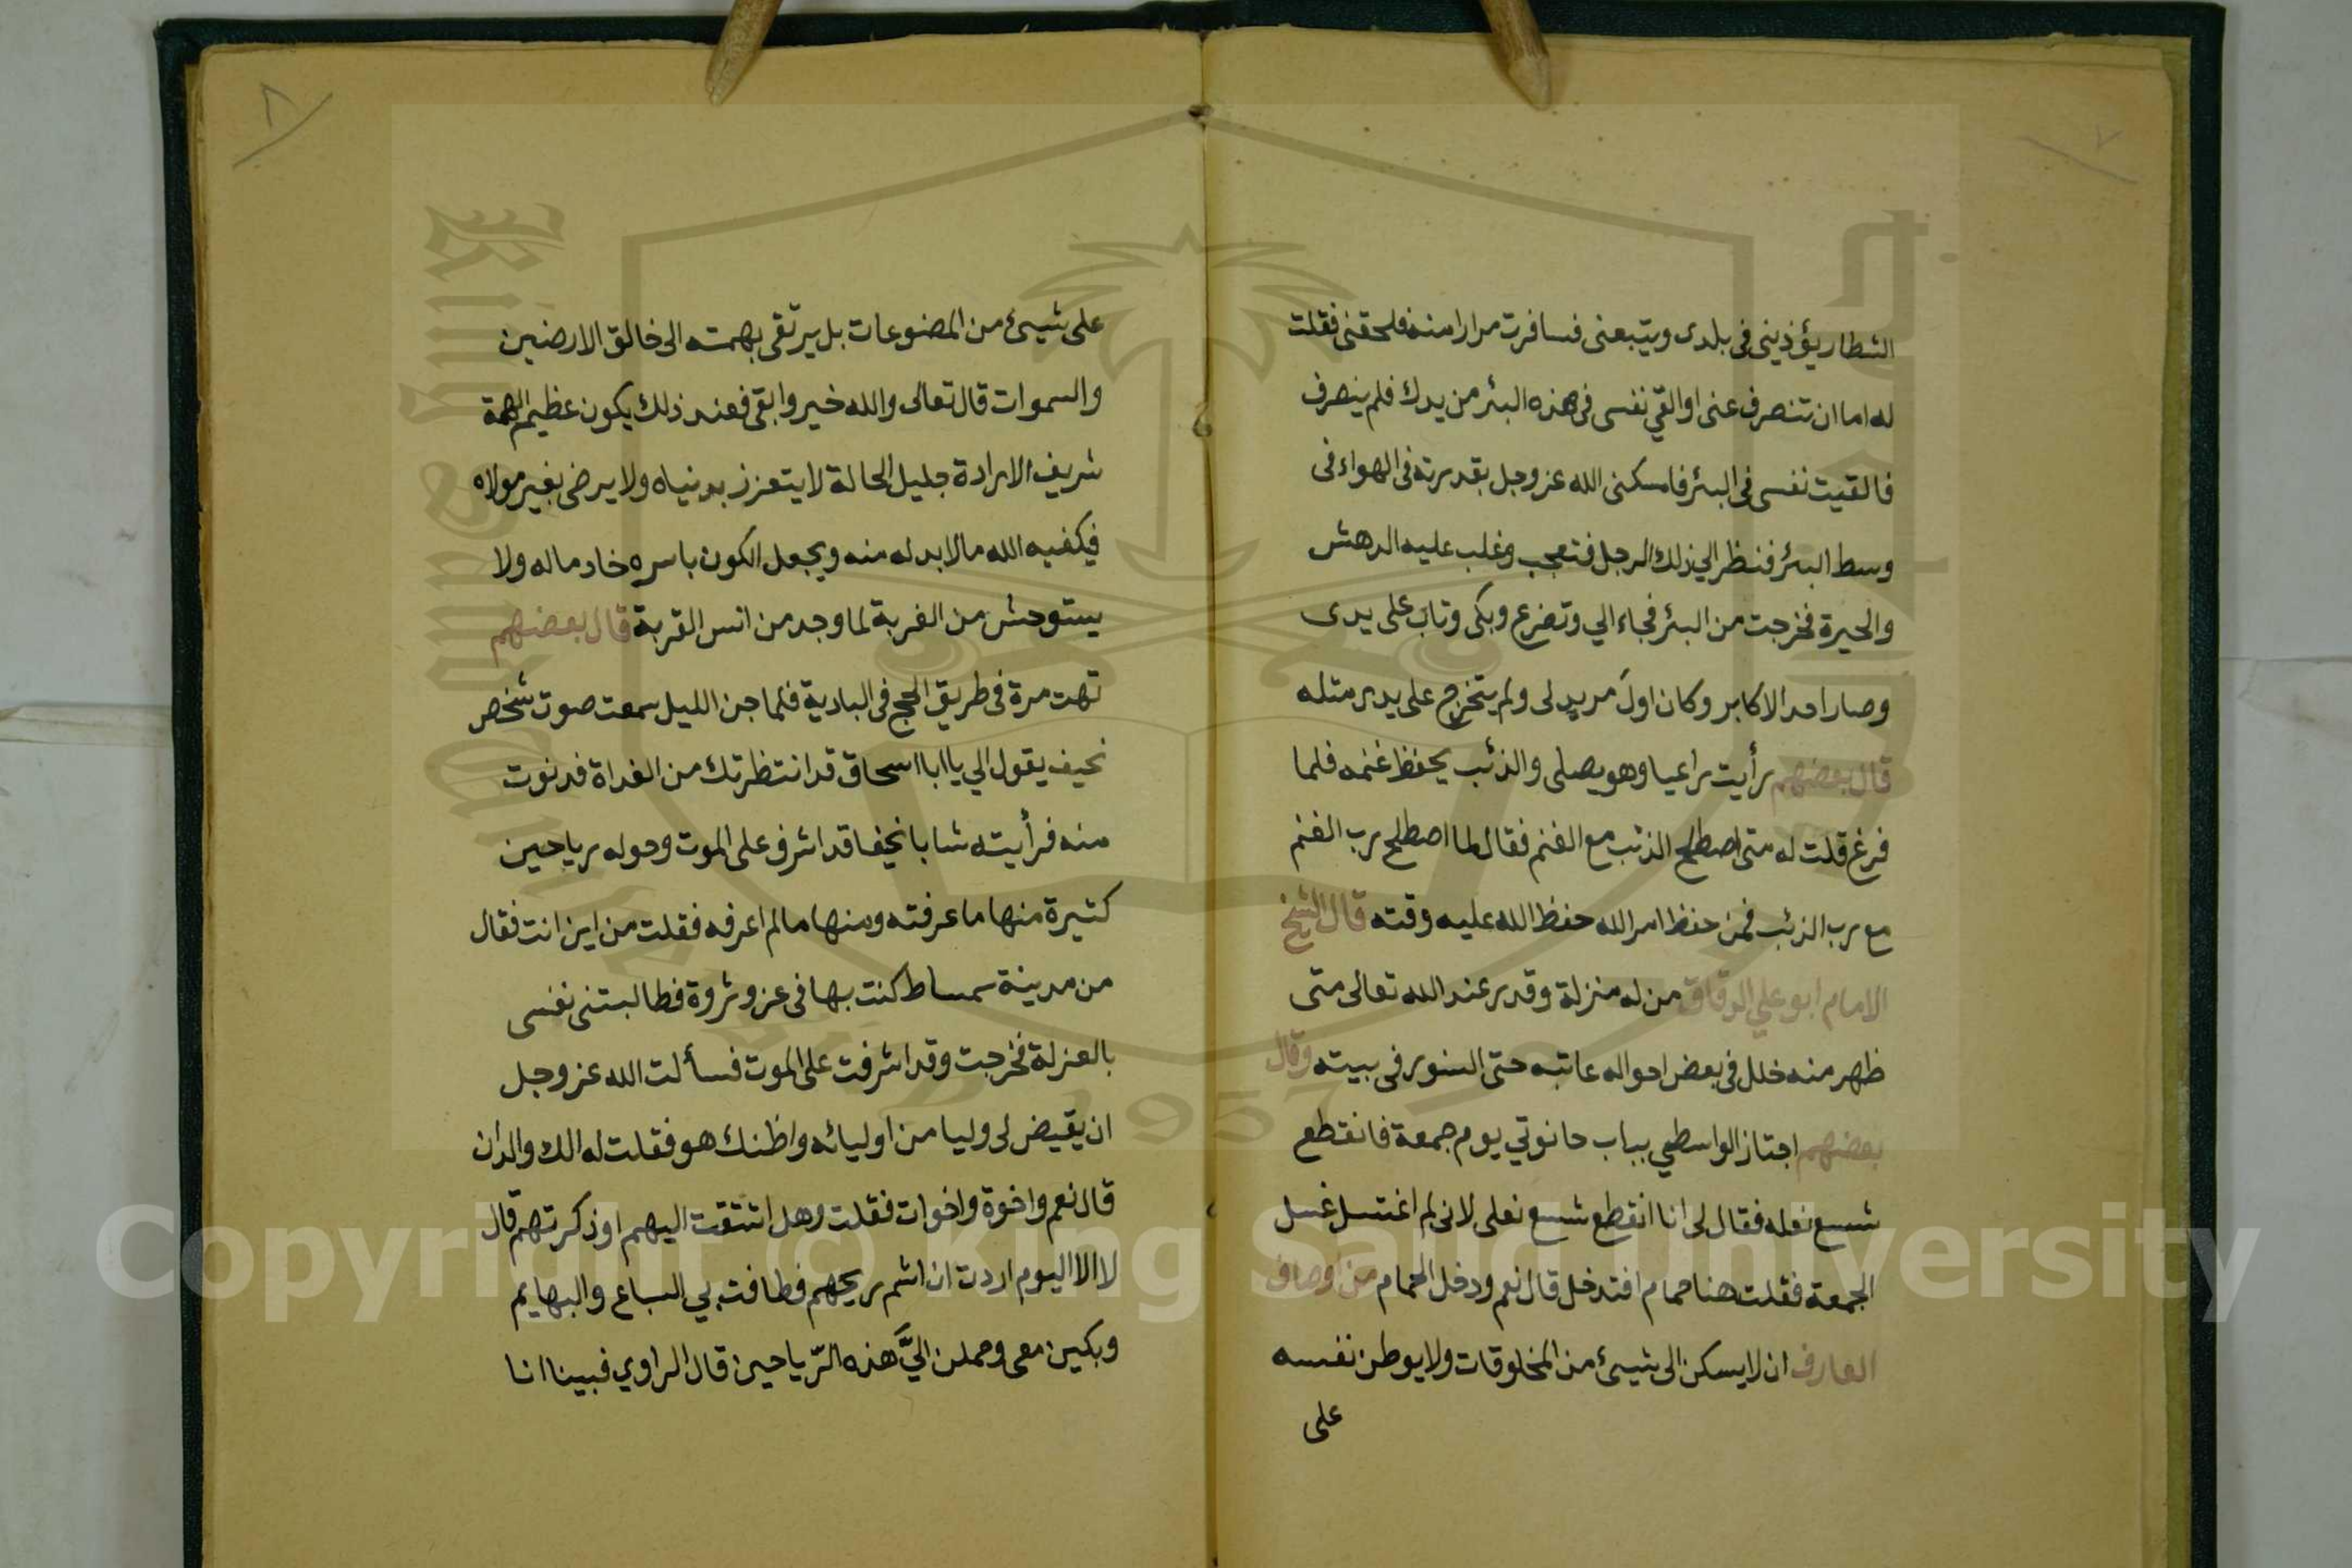 الشطار يؤذيني في بلدى ويتبعنى فسافرت مرارا منه فلحقنى فقلت
له اما ان تنصرف عنى او القي نفسى فى هذه البئر من يدك فلم ينصرف
فالقيت نفسى فى البئر فامسكنى الله عز وجل بقدرته فى الهواء فى
وسط البئر فنظر الي ذلك الرجل فتعجب وغلب عليه الدهش
والحيرة فخرجت من البئر فجاء الي وتضرع وبكى وتاب على يدى
وصار احد الاكابر وكان اول مريد لى ولم يتخرج على يدى مثله
قال بعضهم رأيت راعيا وهو يصلى والذئب يحفظ غنمه فلما
فرغ قلت له متى اصطلح الذئب مع الغنم فقال لما اصطلح رب الغنم
مع رب الذئب فمن حفظ امر الله حفظ الله عليه وقته قال الشيخ
الامام ابو علي الدقاق من له منزلة وقدر عند الله تعالى متى
ظهر منه خلل فى بعض احواله عاتبه حتى السنور فى بيته وقال
بعضهم اجتاز الواسطي بباب حانوتي يوم جمعة فانقطع
شسع نعله فقال لى انا انقطع شسع نعلى لانى لم اغتسل غسل
الجمعة فقلت هنا حمام افتدخل قال نعم ودخل الحمام من اوصاف
العارف ان لا يسكن الى شيئ من المخلوقات ولا يوطن نفسه
على
٨
على شيئ من المصنوعات بل يرتقى بهمته الى خالق الارضين
والسموات قال تعالى والله خير وابقى فعند ذلك يكون عظيم الهمة
شريف الارادة جليل الحالة لا يتعزز بدنياه ولا يرضى بغير مولاه
فيكفيه الله ما لا بد له منه ويجعل الكون باسره خادما له ولا
يستوحش من الغربة لما وجد من انس القربة قال بعضهم
تهت مرة فى طريق الحج فى البادية فلما جن الليل سمعت صوت شخص
نحيف يقول الي يا ابا اسحاق قد انتظرتك من الغداة فدنوت
منه فرأيته شابا نحيفا قد اشرف على الموت وحوله رياحين
كثيرة منها ما عرفته ومنها ما لم اعرفه فقلت من اين انت فقال
من مدينة سمساط كنت بها فى عز وثروة فطالبتنى نفسى
بالعزلة فخرجت وقد اشرفت على الموت فسألت الله عز وجل
ان يقيض لى وليا من اوليائه واظنك هو فقلت له الك والدان
قال نعم واخوة واخوات فقلت وهل اشتقت اليهم او ذكرتهم قال
لا الا اليوم اردت ان اشم ريحهم فطافت بي السباع والبهايم
وبكين معى وحملن اليَّ هذه الرّياحين قال الراوي فبينا انا
Copyright © King Saud University
1957